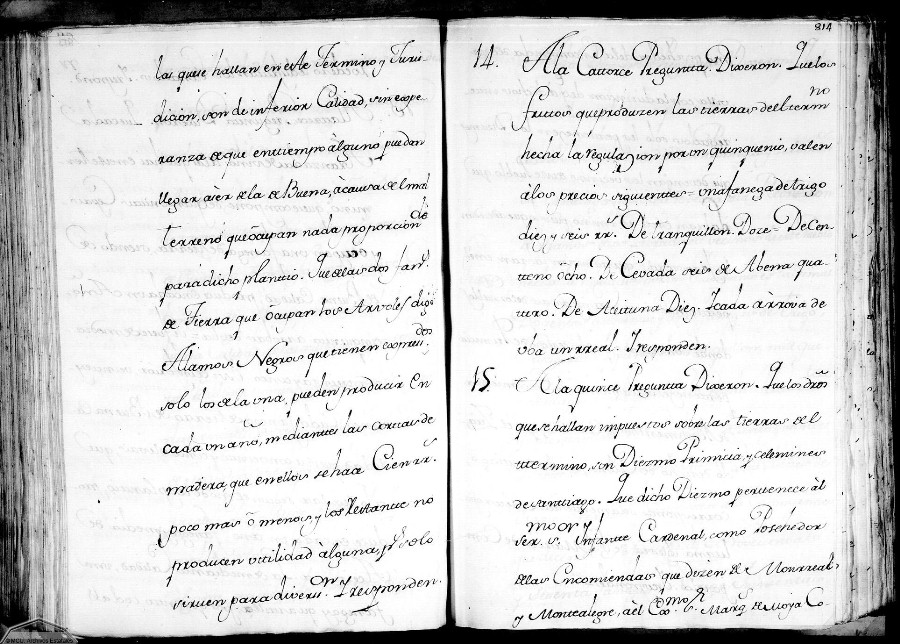 las que se hallan en este Termino y Juris
dicion, son de inferior Calidad, sin espe
ranza de que en tiempo alguno puedan
llegar à ser de la de Buena, à causa de el mal
terreno que ocupan nada proporcion.do
para dicho plantio. Que de las dos fan.s
de Tierra que ocupan los Arvoles dig.s
Alamos Negros que tienen expres.dos
solo los de la una, pueden producir en
cada un año, mediante las cortas de
madera, que en ellos se haze Cien rr.s
poco mas ò menos, y los Restante no
producen utilidad alguna, p.s solo
sirven para divers.on Y responden.
814
14. A la Catorce Pregunta. Dixeron. Que los
frutos que produzen las tierras de el term.no
hecha la regulazion por un quinquenio, valen
à los precios siguientes = una fanega de trigo
diez y seis rr.s De tranquillon. Doze. De Cen
teno ocho. De Cevada seis de Abena qua
tro. De Aceituna Diez. Y cada arrova de
Uba un rreal. Y responden.
15. A la quince Pregunta Dixeron. Que los dros
que se hallan impuestos sobre las tierras de el
termino, son Diezmo Primicia, y celemines
de santiago. Que dicho Diezmo pertenece al
Ser.mo S.or Infante Cardenal, como Posehedor
de las Encomiendas que dizen de Monrreal
y Montealegre, à el Exmo S.r Marq.s de Moya Co-
©MCU. Archivos Estatales